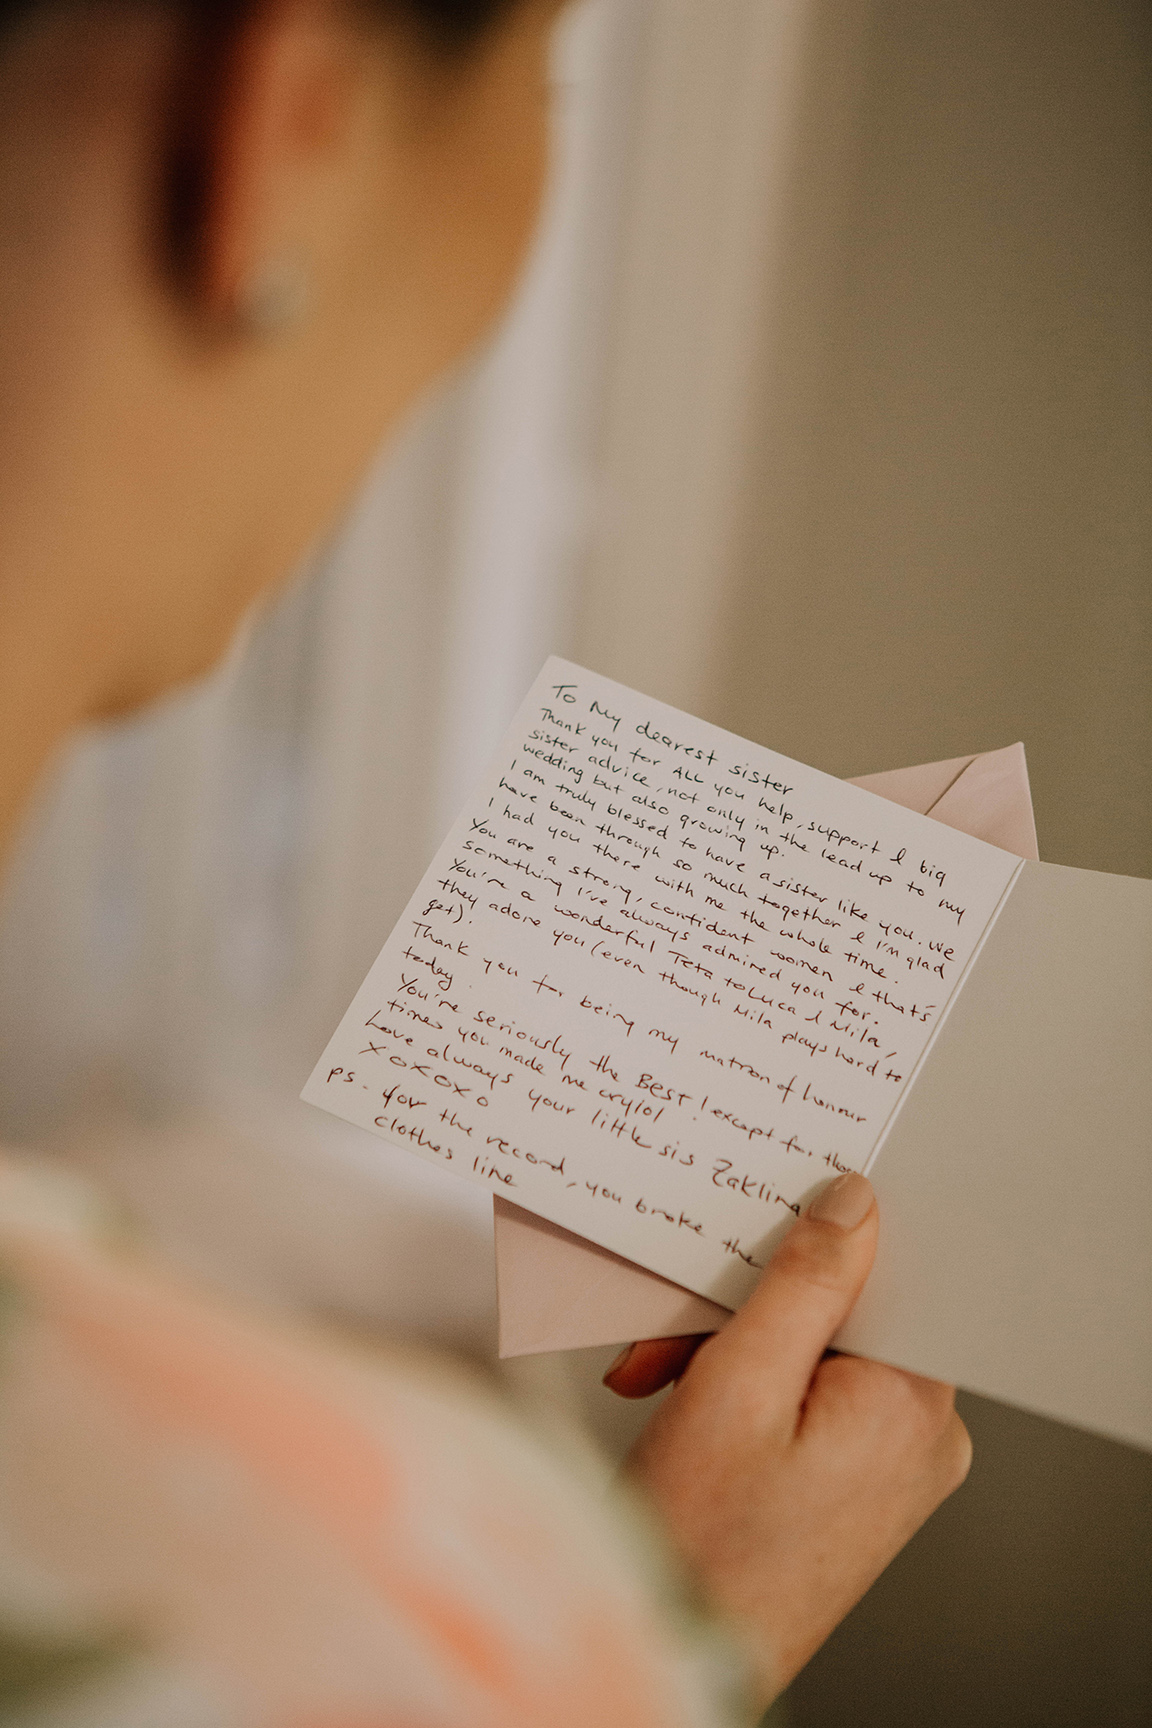 To My dearest sister
Thank you for ALL you help, support & big
sister advice, not only in the lead up to my
wedding but also growing up.
I am truly blessed to have a sister like you. We
have been through so much together & I'm glad
I had you there with me the whole time.
You are a strong, confident women & that's
something I've always admired you for.
You're a wonderful Teta to Luca & Mila,
they adore you (even though Mila plays hard to
get).
Thank you for being my matron of honour
today.
You're seriously the BEST! except for those
times you made me cry lol
Love always your little sis Zaklina
XOXOXO
ps. for the record, you broke the
clothes line